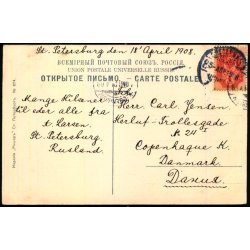 St. Petersburg den 18 April 1908.
ВСЕМІРНЫЙ ПОЧТОВЫЙ СОЮЗЪ. РОССІЯ
UNION POSTALE UNIVERSELLE RUSSIE
ОТКРЫТОЕ ПИСЬМО — CARTE POSTALE
Mange Hilsner
til eder alle fra
A. Larsen
St. Petersburg
Rusland
Herr Carl Jensen
Herluf-Trollesgade
№ 24
Copenhague K.
Danmark
Данія